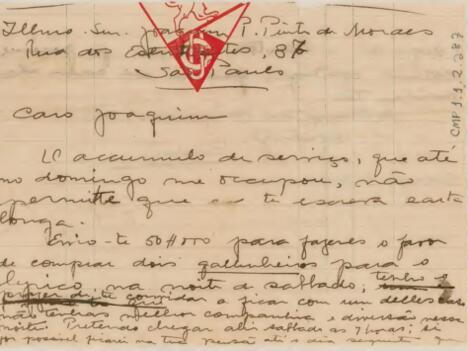 Illmo. Snr. Joaquim P. Pinto de Moraes
Rua dos Estudantes, 87
São Paulo
CMP 1.1.2.287
Caro Joaquim
O accumulo de serviço, que até
no domingo me occupou, não
permitte que te escreva carta
longa.
Envio-te 50$000 para fazeres o favor
de comprar dois gallinheiros para o
lyrico na noite de sabbado,
convidar a ficar com um delles caso
não tenhas melhor companhia e diversão nessa
noite. Pretendo chegar ahi sabbado as 7 horas; si
for possivel ficarei na tua pensão até o dia seguinte